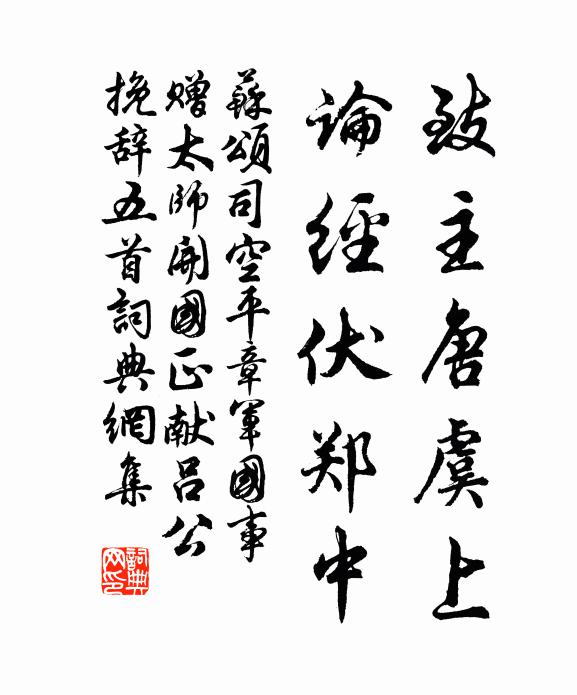 致主唐虞上
論經伏郑中
蘇頌司空平章軍國事
赠太師開國正献吕公
挽辞五首詞典網集
詞典网印